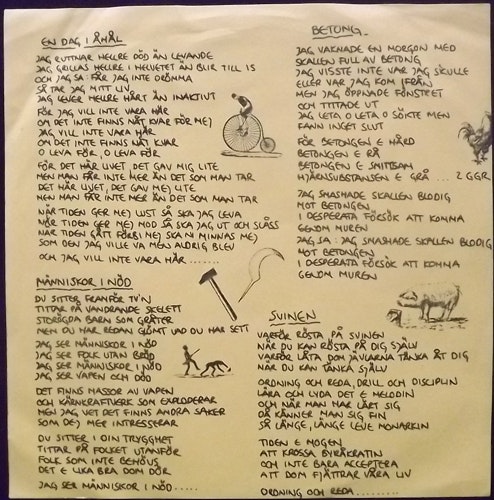 EN DAG I ÅHÅL
JAG RUTTNAR HELLRE DÖD ÄN LEVANDE
JAG GRILLAS HELLRE I HELVETET ÄN BLIR TILL IS
OCH JAG SA FÅR JAG INTE DRÖMMA
SÅ TAR JAG MITT LIV
JAG LEVER HELLRE HÅRT ÄN INAKTIVT
FÖR JAG VILL INTE VARA HÄR
OM DET INTE FINNS NÅT KVAR FÖR MEJ
JAG VILL INTE VARA HÄR
OM DET INTE FINNS NÅT KVAR
O LEVA FÖR, O LEVA FÖR
FÖR DET HÄR LIVET DET GAV MIG LITE
MEN MAN FÅR INTE MER ÄN DET SOM MAN TAR
DET HÄR LIVET, DET GAV MEJ LITE
MEN MAN FÅR INTE MER ÄN DET SOM MAN TAR
NÄR TIDEN GER MEJ LUST SÅ SKA JAG LEVA
NÄR TIDEN GER MEJ MOD SÅ SKA JAG UT OCH SLÅSS
NÄR TIDEN GÅTT FÖRBI MEJ SKA NI MINNAS MEJ
SOM DEN JAG VILLE VA MEN ALDRIG BLEV
OCH JAG VILL INTE VARA HÄR ......
MÄNNISKOR I NÖD
DU SITTER FRAMFÖR TV'N
TITTAR PÅ VANDRANDE SKELETT
STORÖGDA BARN SOM GRÅTER
MEN DU HAR REDAN GLÖMT VAD DU HAR SETT
JAG SER MÄNNISKOR I NÖD
JAG SER FOLK UTAN BRÖD
JAG SER MÄNNISKOR I NÖD
JAG SER VAPEN OCH DÖD
DET FINNS MASSOR AV VAPEN
OCH KÄRNKRAFTVERK SOM EXPLODERAR
MEN JAG VET DET FINNS ANDRA SAKER
SOM DEJ MER INTRESSERAR
DU SITTER I DIN TRYGGHET
TITTAR PÅ FOLKET UTANFÖR
FOLK SOM INTE BEHÖVS
DET E LIKA BRA DOM DÖR
JAG SER MÄNNISKOR I NÖD .....
BETONG
JAG VAKNADE EN MORGON MED
SKALLEN FULL AV BETONG
JAG VISSTE INTE VAR JAG SKULLE
ELLER VAR JAG KOM IFRÅN
MEN JAG ÖPPNADE FÖNSTRET
OCH TITTADE UT
JAG LETA O LETA O SÖKTE MEN
FANN INGET SLUT
FÖR BETONGEN E HÅRD
BETONGEN E RÅ
BETONGEN E SMITTSAM
HJÄRNSUBSTANSEN E GRÅ .... 2 GGR.
JAG SMASHADE SKALLEN BLODIG
MOT BETONGEN
I DESPERATA FÖRSÖK ATT KOMMA
GENOM MUREN
JAG SA: JAG SMASHADE SKALLEN BLODIG
MOT BETONGEN
I DESPERATA FÖRSÖK ATT KOMMA
GENOM MUREN
SVINEN
VARFÖR RÖSTA PÅ SVINEN
NÄR DU KAN RÖSTA PÅ DIG SJÄLV
VARFÖR LÅTA DOM JÄVLARNA TÄNKA ÅT DIG
NÄR DU KAN TÄNKA SJÄLV
ORDNING OCH REDA, DRILL OCH DISCIPLIN
LÄRA OCH LYDA DET E MELODIN
OCH NÄR MAN HAR LÄRT SIG
DÅ KÄNNER MAN SIG FIN
SÅ LÄNGE, LÄNGE LEVE MONARKIN
TIDEN E MOGEN
ATT KROSSA BYRÅKRATIN
OCH INTE BARA ACCEPTERA
ATT DOM FJÄTTRAR VÅRA LIV
ORDNING OCH REDA.....